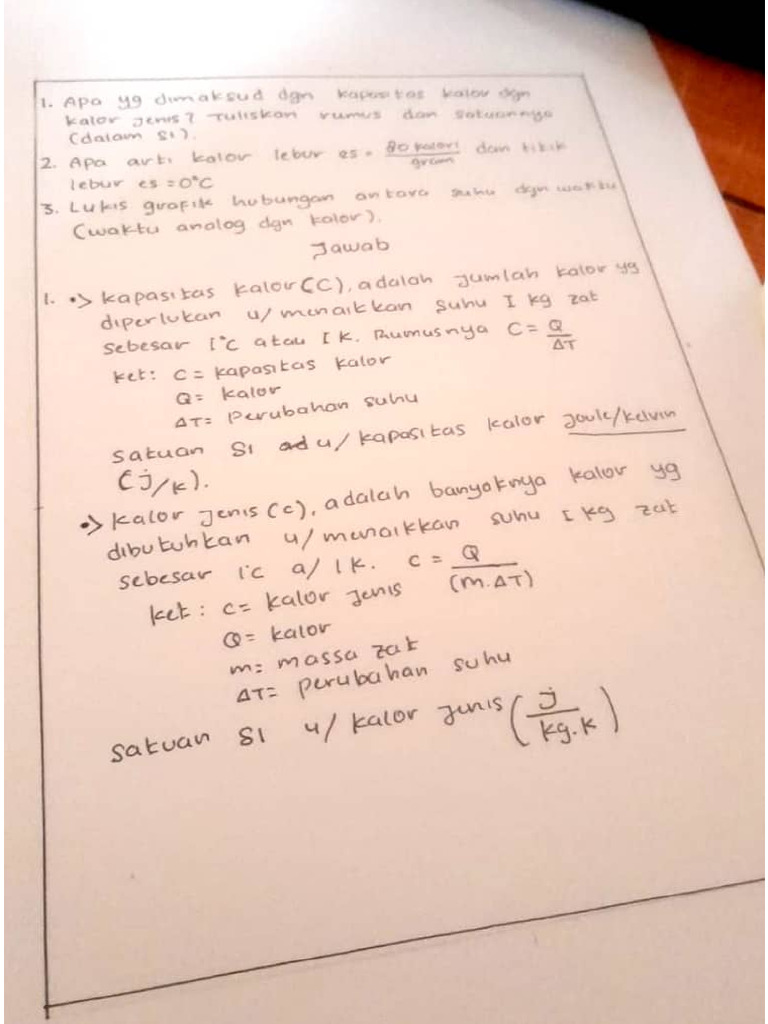 1. Apa yg dimaksud dgn kapasitas kalor dgn
kalor jenis? Tuliskan rumus dan satuannya
(dalam SI).
2. Apa arti kalor lebur es = 80 kalori/gram dan titik
lebur es = 0°C
3. Lukis grafik hubungan antara suhu dgn waktu
(waktu analog dgn kalor).
Jawab
1. •> kapasitas kalor (C), adalah jumlah kalor yg
diperlukan u/ menaikkan suhu 1 kg zat
sebesar 1°C atau 1 K. Rumusnya C = Q/ΔT
ket: C = kapasitas kalor
Q = kalor
ΔT = Perubahan suhu
satuan SI u/ kapasitas kalor joule/kelvin
(j/K).
•> kalor jenis (c), adalah banyaknya kalor yg
dibutuhkan u/ menaikkan suhu 1 kg zat
sebesar 1°c a/ 1 K. c = Q/(m.ΔT)
ket : c = kalor jenis
Q = kalor
m = massa zat
ΔT = perubahan suhu
satuan SI u/ kalor jenis (j/kg.K)